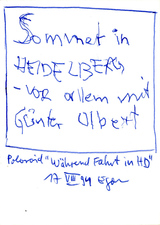 Sommer in
HEIDELBERG
- VOR allem mit
Günter Olbert
Polaroid "Während Fahrt in HD"
17 VIII 94